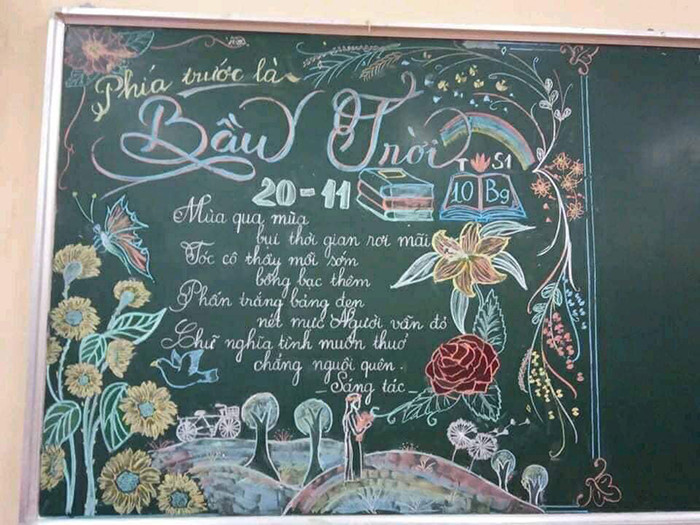 Phía trước là
Bầu Trời
T S1
20-11
10 B9
Mùa qua mùa
bụi thời gian rơi mãi
Tóc cô thầy mỗi sớm
bỗng bạc thêm
Phấn trắng bảng đen
nét mực Người vẫn đỏ
Chữ nghĩa tình muôn thuở
chẳng nguội quên.
_Sáng tác_